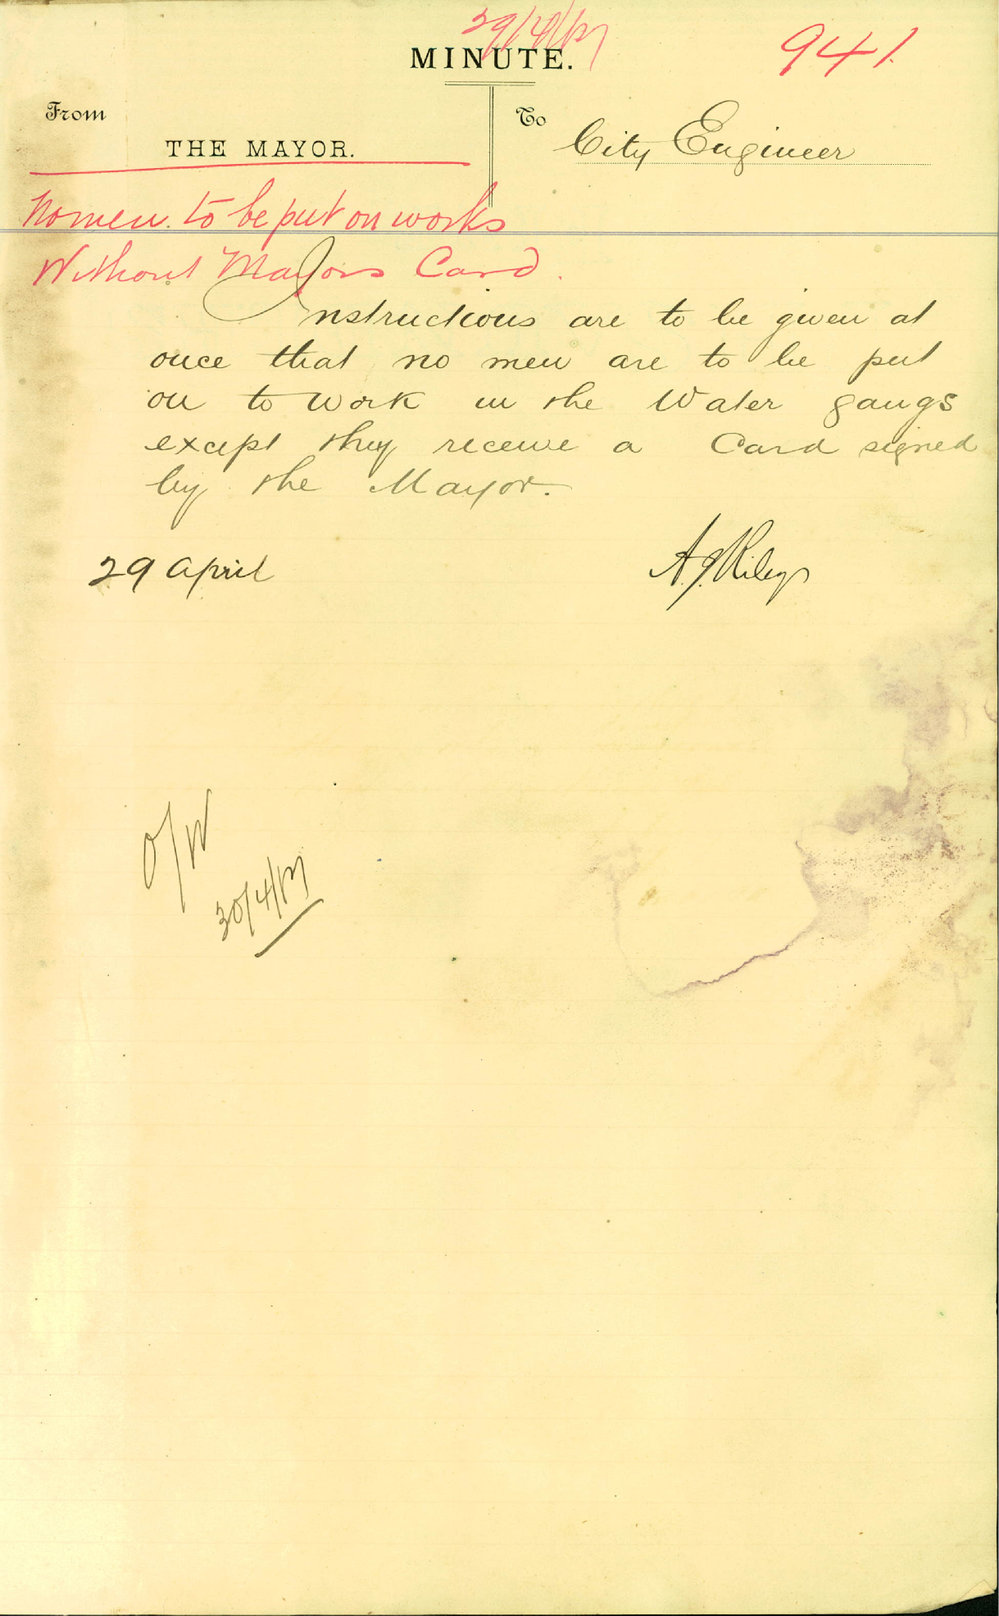 29/4/17
MINUTE.
941.
From
To
THE MAYOR.
City Engineer
No men to be put on works
Without Mayors Card.
Instructions are to be given at
once that no men are to be put
on to work in the Water gangs
except they receive a Card signed
by the Mayor.
29 April
A. J. Riley
O/W
30/4/17